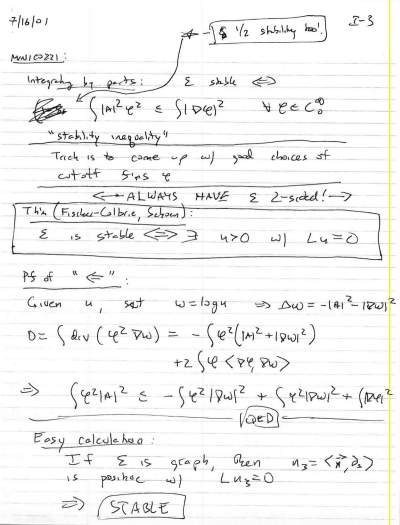 7/16/01
← - & 1/2 stability too!
I-3
MINICOZZI:
Integrating by parts: Σ stable ⟺
∫|A|²φ² ≤ ∫|∇φ|² ∀ φ ∈ C₀^∞
"stability inequality"
Trick is to come up w/ good choices of
cutoff f'ns φ
← ALWAYS HAVE Σ 2-sided! →
Thm (Fischer-Colbrie, Schoen):
Σ is stable ⟺ ∃ u>0 w/ Lu=0
Pf of "⇐":
Given u, set w=log u ⇒ Δw = -|A|²-|∇w|²
0 = ∫ div (φ² ∇w) = -∫φ²(|A|²+|∇w|²)
+2∫φ <∇φ, ∇w>
⇒ ∫φ²|A|² ≤ -∫φ²|∇w|² + ∫φ²|∇w|² + ∫|∇φ|²
QED
Easy calculation:
If Σ is graph, then u₃ = <n⃗, ∂₃>
is positive w/ Lu₃=0
⇒ STABLE